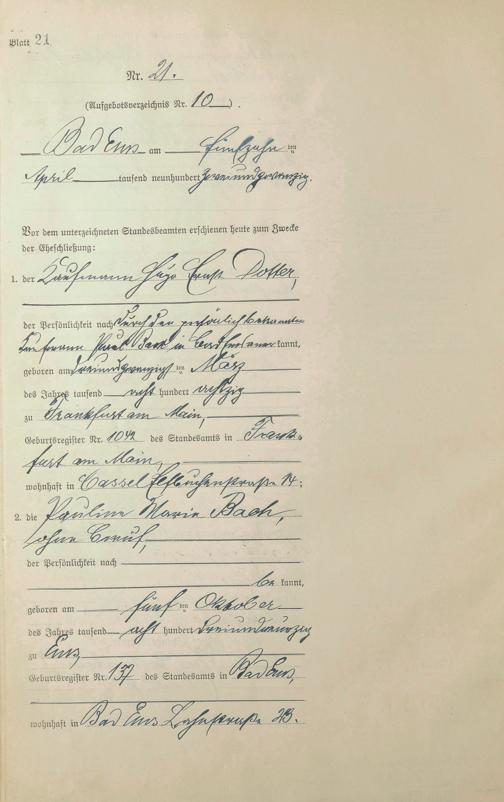 Blatt 21
Nr. 21.
(Aufgebotsverzeichnis Nr. 10).
Bad Ems am fünfzehn ten
April tausend neunhundert zweiundzwanzig.
Vor dem unterzeichneten Standesbeamten erschienen heute zum Zwecke
der Eheschließung:
1. der Kaufmann Hugo Ernst Dotter,
der Persönlichkeit nach durch den persönlich bekannten
Kaufmann Bach in Bad Ems kannt,
geboren am dreiundzwanzigsten März
des Jahres tausend acht hundert achtzig
zu Frankfurt am Main,
Geburtsregister Nr. 1042 des Standesamts in Frank-
furt am Main,
wohnhaft in Cassel Elfbuchenstraße
2. die Pauline Marie Bach,
ohne Beruf,
der Persönlichkeit nach
be kannt,
geboren am fünf ten Oktober
des Jahres tausend acht hundert
zu Ems,
Geburtsregister Nr. 137 des Standesamts in Bad Ems,
wohnhaft in Bad Ems Lahnstraße 23.